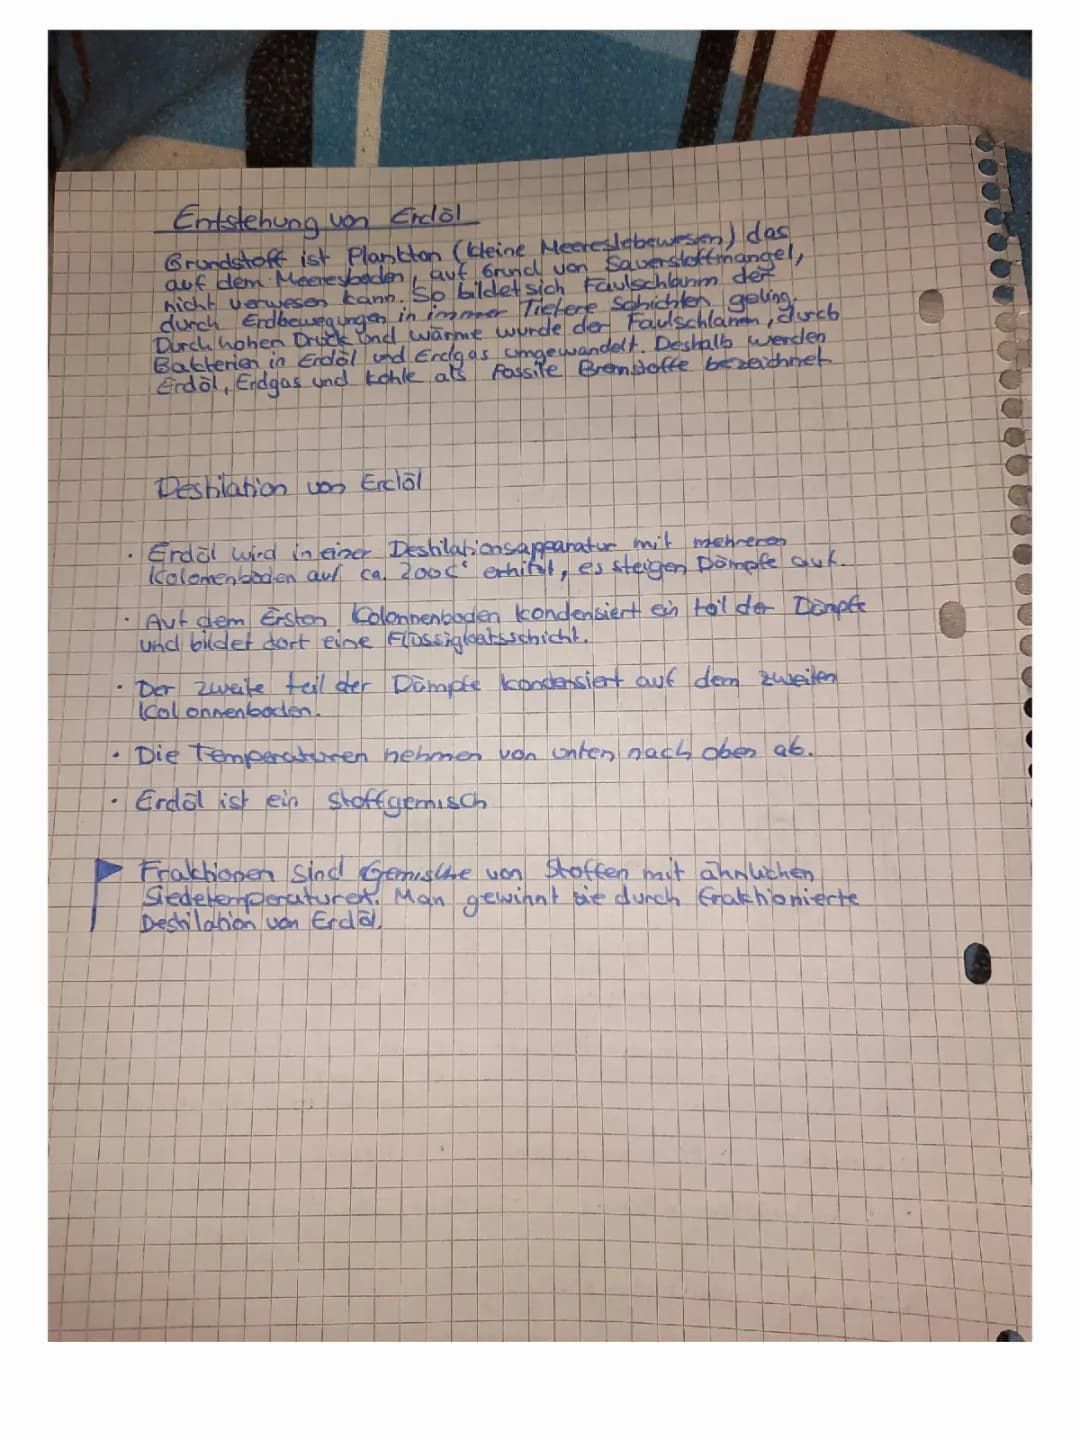 Entstehung von Erdöl
Grundstoff ist Plankton (kleine Meereslebewesen) das
auf dem Meeresboden, auf Grund von Sauerstoffmangel,
nicht verwesen kann. So bildet sich Faulschlamm der
durch Erdbewegungen in immer Tiefere Schichten geling.
Durch hohen Druck und wärme wurde der Faulschlamm, durch
Bakterien in Erdöl und Erdgas umgewandelt. Deshalb werden
Erdöl, Erdgas und kohle als Fossile Brennstoffe bezeichnet
Destilation von Erdöl
· Erdöl wird in einer Destilationsapparatur mit mehreren
Kolonnenboden auf ca. 200C° erhitzt, es steigen Dämpfe auf.
· Auf dem Ersten Kolonnenboden kondensiert ein teil der Dämpfe
und bildet dort eine Flüssigkeitsschicht.
· Der zweite teil der Dämpfe kondensiert auf dem zweiten
Kolonnenboden.
· Die Temperaturen nehmen von unten nach oben ab.
· Erdöl ist ein Stoffgemisch
Fraktionen Sind Gemische von Stoffen mit ähnlichen
Siedetemperaturen. Man gewinnt sie durch fraktionierte
Destilation von Erdöl.